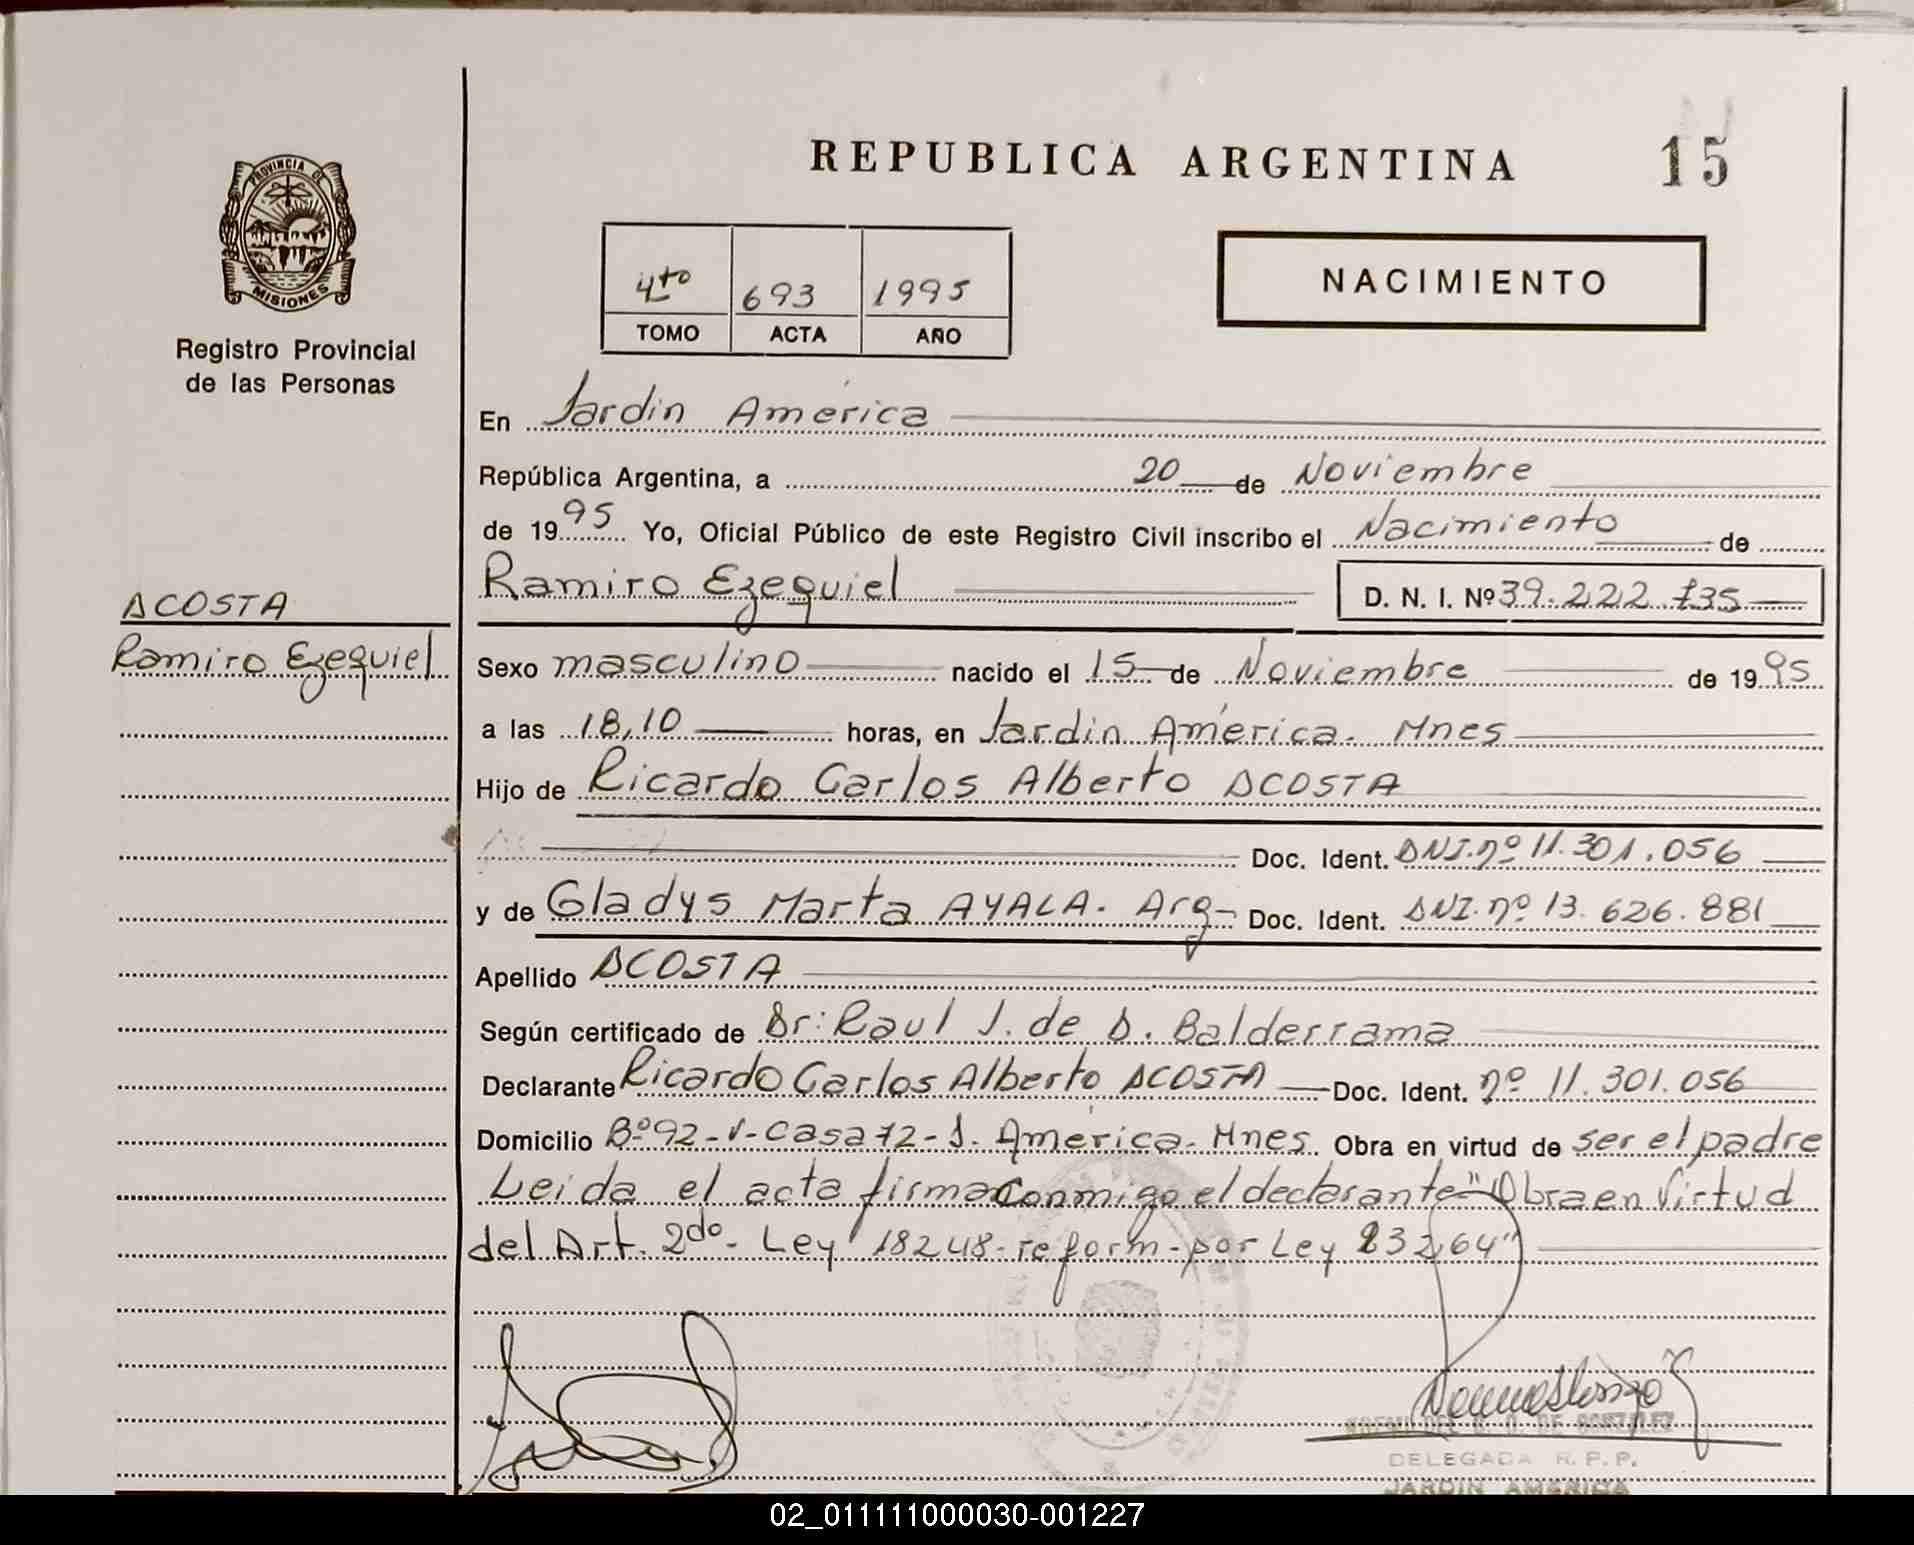 REPUBLICA ARGENTINA 15
PROVINCIA DE
MISIONES
Registro Provincial
de las Personas
NACIMIENTO
4to 693 1995
TOMO ACTA AÑO
En Jardin América
República Argentina, a 20 de Noviembre
de 1995 Yo, Oficial Público de este Registro Civil inscribo el Nacimiento de
Ramiro Ezequiel D. N. I. Nº 39.222.735
ACOSTA
Ramiro Ezequiel
Sexo masculino nacido el 15 de Noviembre de 1995
a las 18,10 horas, en Jardin América. Mnes
Hijo de Ricardo Carlos Alberto ACOSTA
Doc. Ident. DNI.nº 11.301.056
y de Gladys Marta AYALA. Arg- Doc. Ident. DNI.nº 13.626.881
Apellido ACOSTA
Según certificado de Dr: Raul J. de D. Balderrama
Declarante Ricardo Carlos Alberto ACOSTA Doc. Ident. nº 11.301.056
Domicilio Bº92-V-Casa 72-J. América. Mnes Obra en virtud de ser el padre
Leida el acta firma conmigo el declarante-"Obra en Virtud
del Art. 2do- Ley 18248-reform-por Ley 23264"
DE GONZALEZ
DELEGADA R.P.P.
JARDIN AMERICA
02_011111000030-001227